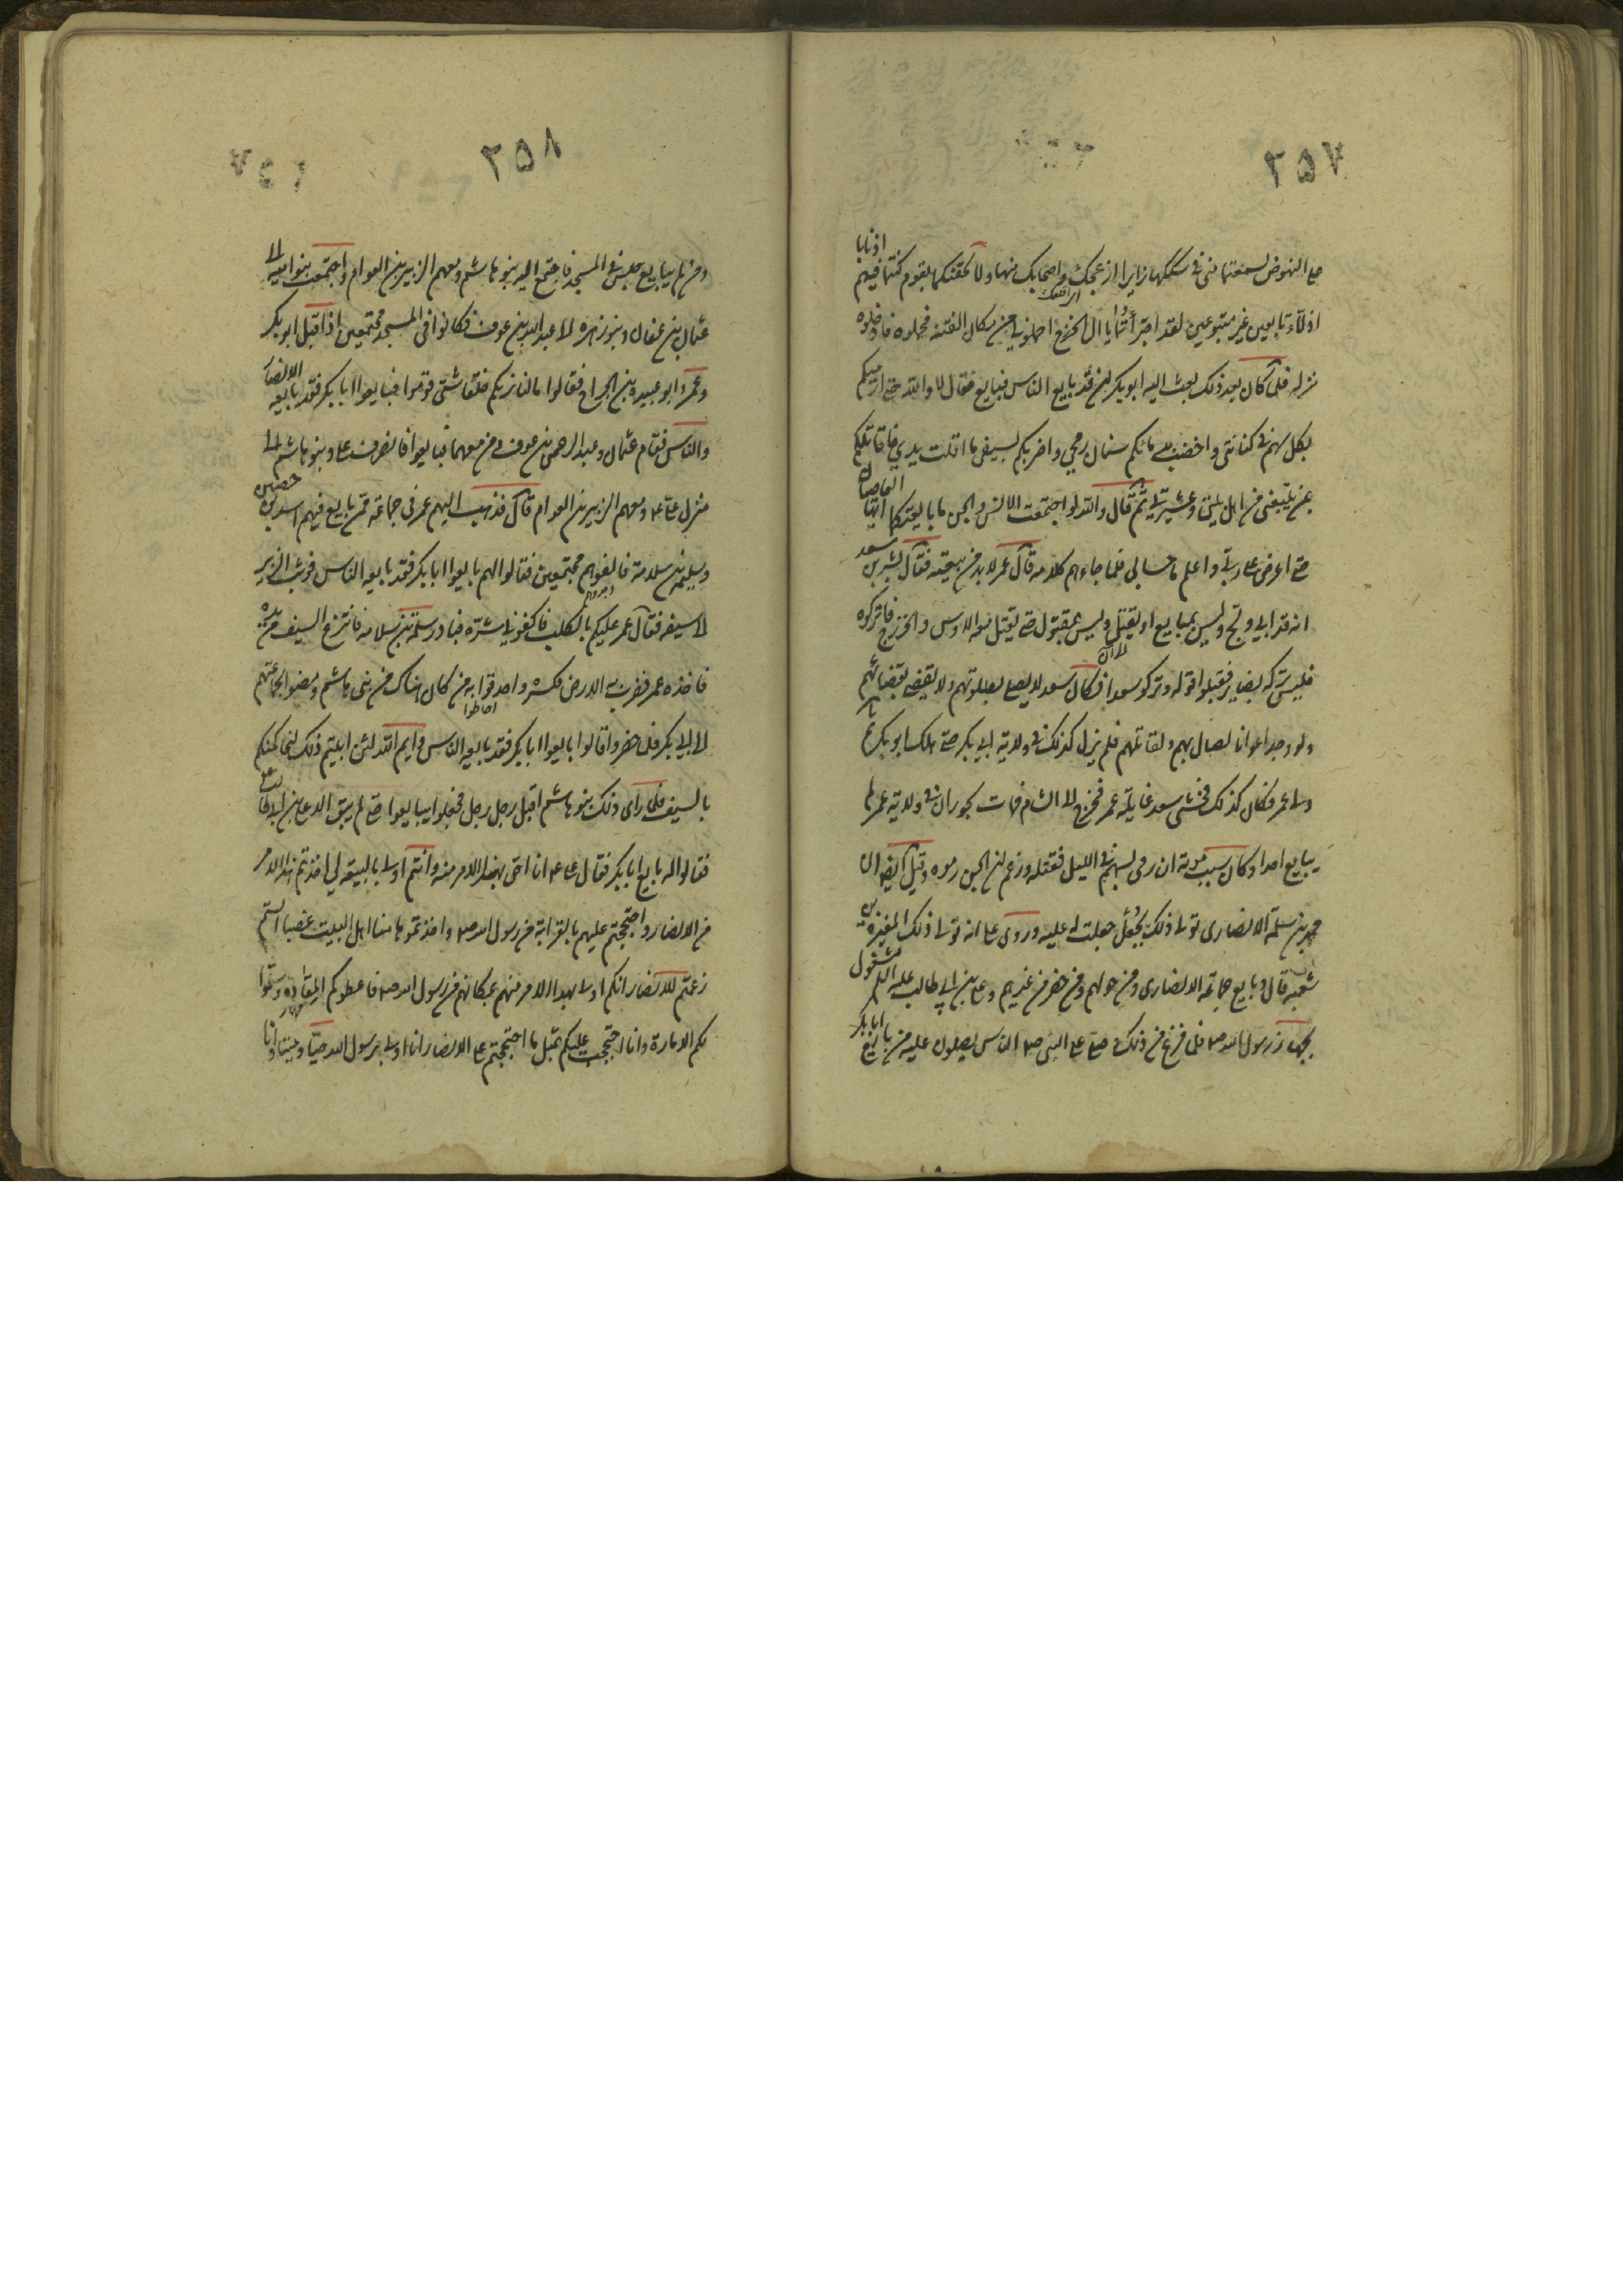 ٢٥٧
على النهوض لسمعتما منى فى سككها زايرا ازعجك واصحابك منها ولا لحقنكما بقوم كنتما فيهم اذنابا
اذلاء تابعين غير متبوعين لقد اجترأتما يا ال الخزرج احملونى من مكان الفتنة فحملوه فادخلوه
منزله فلما كان بعد ذلك بعث اليه ابو بكر ان قد بايع الناس فبايع فقال لا والله حتى ارميكم
بكل سهم فى كنانتى واخضب من دمائكم سنان رمحى واضربكم بسيفى ما اقلت يدى فاقاتلكم
بمن يتبعنى من اهل بيتى وعشيرتى ثم قال والله لو اجتمعت الانس والجن ما بايعتكما ايها العاصيان
حتى اعرض على ربى واعلم ما حسابى فلما جاءهم كلامه قال عمر لا بد من بيعته فقال بشير بن سعد
انه قد ابى ولج وليس بمبايع او يقتل وليس بمقتول حتى يقتل معه الاوس والخزرج فاتركوه
فليس تركه بضاير فقبلوا قوله وتركوا سعدا فكان سعد لا يصلى بصلوتهم ولا يقضى بقضائهم
ولو وجد اعوانا لصال بهم ولقاتلهم فلم يزل كذلك فى ولاية ابى بكر حتى هلك ابو بكر ثم
ولى عمر فكان كذلك فخشى سعد غايلة عمر فخرج الى الشام فمات بحوران فى ولاية عمر ولم
يبايع احدا وكان سبب موته ان رمى بسهم فى الليل فقتله وزعم ان الجن رموه وقيل ايضا ان
محمد بن سلمة الانصارى تولى ذلك بجعل جعلت له عليه وروى على انه تولى ذلك المغيرة بن
شعبة قال وبايع جماعة الانصارى ومن حولهم ومن حضر من غيرهم وعلى بن ابى طالب عليه السلام مشغول
بجهاز رسول الله ص فلما فرغ من ذلك وصلى على النبى ص والناس يصلون عليه من بايع ابا بكر
٢٥٨
ومن لم يبايع جلس فى المسجد فاجتمع اليه بنو هاشم ومعهم الزبير بن العوام واجتمعت بنو امية الى
عثمان بن عفان وبنو زهرة الى عبد الله بن عوف فكانوا فى المسجد مجتمعين اذا قبل ابو بكر
وعمر وابو عبيدة بن الجراح فقالوا ما لنا نريكم حلقا شتى قوموا فبايعوا ابا بكر فقد بايعه الانصار
والناس فقام عثمان وعبد الرحمن بن عوف ومن معهما فبايعوا فانصرف على وبنو هاشم الى
منزل على ع ومعهم الزبير بن العوام قال فذهب اليهم عمر فى جماعة ممن بايع فيهم اسيد بن حصين
وسليم بن سلامة فالفوهم مجتمعين فقالوا لهم بايعوا ابا بكر فقد بايعه الناس فوثب الزبير
الى سيفه فقال عمر عليكم بالكلب فاكفونى شره فبادر سلمة بن سلامه فانتزع السيف من يده
فاخذه عمر فضرب به الارض فكسره واحدقوا به من كان هناك من بنى هاشم ومضوا بجماعتهم
احاطوا
الى ابى بكر فلما حضروا قالوا بايعوا ابا بكر فقد بايعه الناس وايم الله لئن ابيتم ذلك لنحاكمنكم
بالسيف فلما رأى ذلك بنو هاشم اقبل رجل رجل فجعلوا يبايعوا حتى لم يبق الا على بن ابى طالب ع
فقالوا له بايع ابا بكر فقال على ع انا احق بهذا الامر منه وانتم اولى بالبيعة لى اخذتم هذا الامر
من الانصار واحتججتم عليهم بالقرابة من رسول الله ص واخذتموها منا اهل البيت غصبا الستم
زعمتم للانصار انكم اولى بهذا الامر منهم بمكانهم من رسول الله ص فاعطوكم المقادة وسلموا
لكم الامارة وانا احتججت عليكم بمثل ما احتججتم على الانصار انا اولى برسول الله حيا وميتا وانا